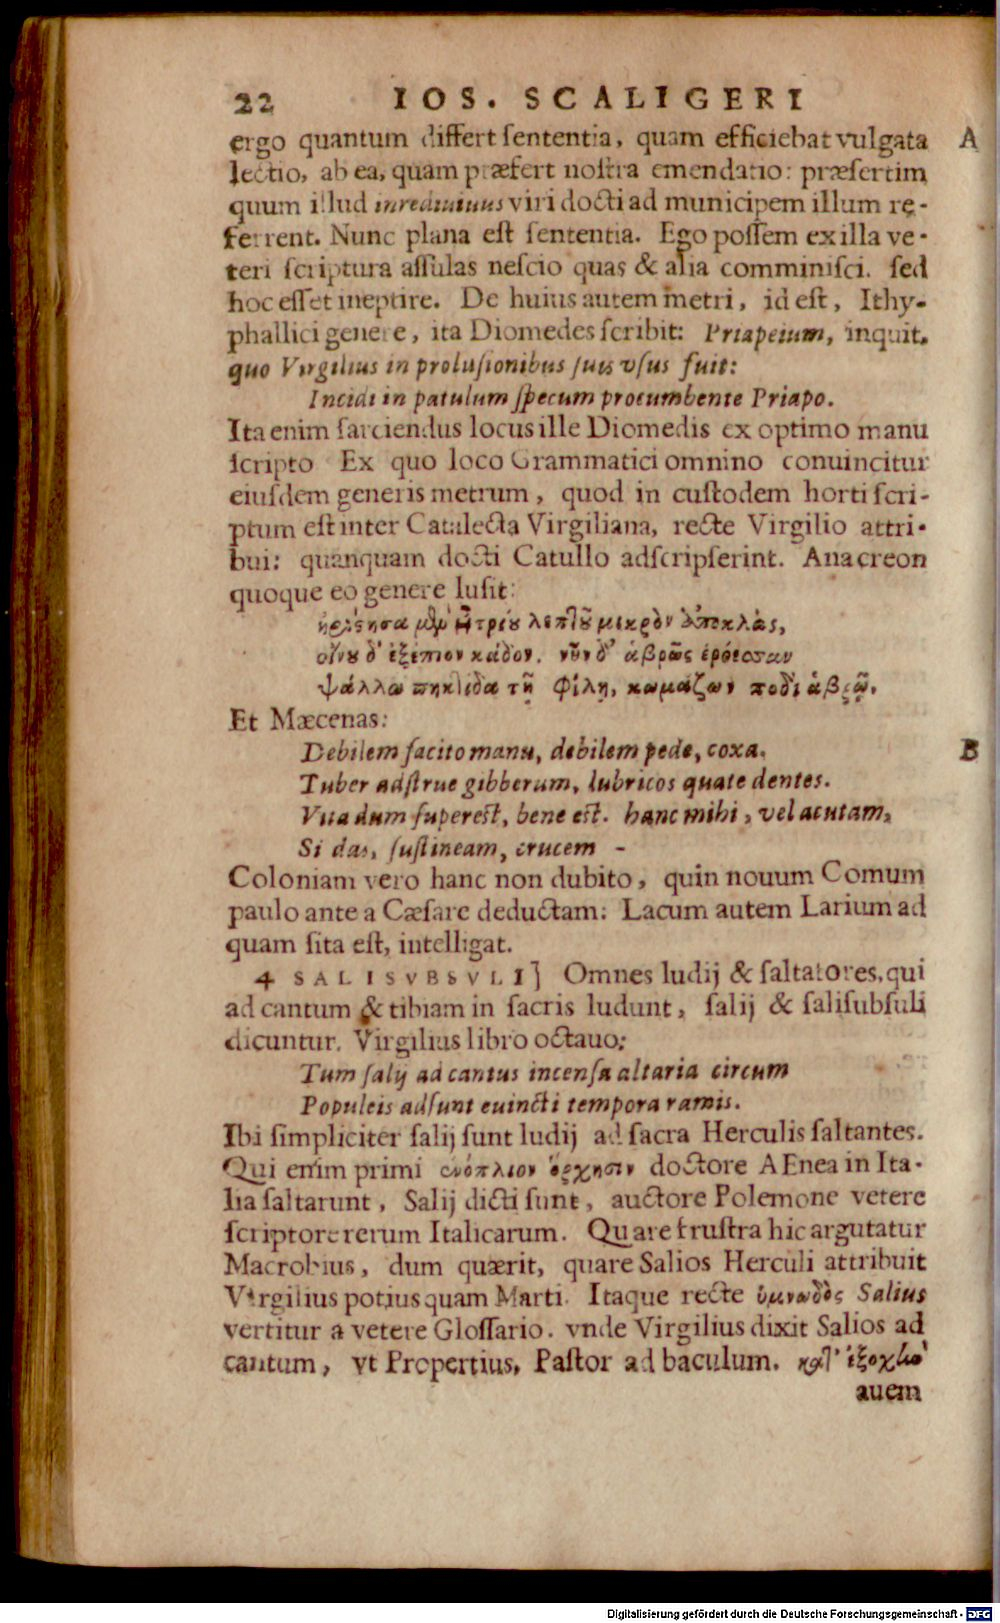 22 IOS. SCALIGERI
ergo quantum differt ſententia, quam efficiebat vulgata A
lectio, ab ea, quam præfert noſtra emendatio: præſertim
quum illud inrediuiuus viri docti ad municipem illum re-
ferrent. Nunc plana eſt ſententia. Ego poſſem ex illa ve-
teri ſcriptura aſſulas neſcio quas & alia comminiſci. ſed
hoc eſſet ineptire. De huius autem metri, id eſt, Ithy-
phallici genere, ita Diomedes ſcribit: Priapeium, inquit,
quo Virgilius in proluſionibus ſuis vſus fuit:
Incidi in patulum ſpecum procumbente Priapo.
Ita enim ſarciendus locus ille Diomedis ex optimo manu
ſcripto Ex quo loco Grammatici omnino conuincitur
eiuſdem generis metrum, quod in cuſtodem horti ſcri-
ptum eſt inter Catalecta Virgiliana, recte Virgilio attri-
bui: quanquam docti Catullo adſcripſerint. Anacreon
quoque eo genere luſit:
ἠρίστησα μὲν ἰτρίου λεπτοῦ μικρὸν ἀποκλὰς,
οἴνου δ' ἐξέπιον κάδον. νῦν δ' ἁβρῶς ἐρόεσσαν
ψάλλω πηκτίδα τῇ φίλῃ, κωμάζων ποδὶ ἁβρῷ.
Et Mæcenas:
Debilem facito manu, debilem pede, coxa. B
Tuber adſtrue gibberum, lubricos quate dentes.
Vita dum ſupereſt, bene eſt. hanc mihi, vel acutam,
Si das, ſuſtineam, crucem -
Coloniam vero hanc non dubito, quin nouum Comum
paulo ante a Cæſare deductam: Lacum autem Larium ad
quam ſita eſt, intelligat.
4 SALISVBSVLI] Omnes ludij & ſaltatores, qui
ad cantum & tibiam in ſacris ludunt, ſalij & ſaliſubſuli
dicuntur. Virgilius libro octauo:
Tum ſalij ad cantus incenſa altaria circum
Populeis adſunt euincti tempora ramis.
Ibi ſimpliciter ſalij ſunt ludij ad ſacra Herculis ſaltantes.
Qui enim primi ἐνόπλιον ὄρχησιν doctore AEnea in Ita-
lia ſaltarunt, Salij dicti ſunt, auctore Polemone vetere
ſcriptore rerum Italicarum. Quare fruſtra hic argutatur
Macrobius, dum quærit, quare Salios Herculi attribuit
Virgilius potius quam Marti. Itaque recte ὑμνωδὸς Salius
vertitur a vetere Gloſſario. vnde Virgilius dixit Salios ad
cantum, vt Propertius, Paſtor ad baculum. κατ' ἐξοχὴν
auem
Digitalisierung gefördert durch die Deutsche Forschungsgemeinschaft - DFG